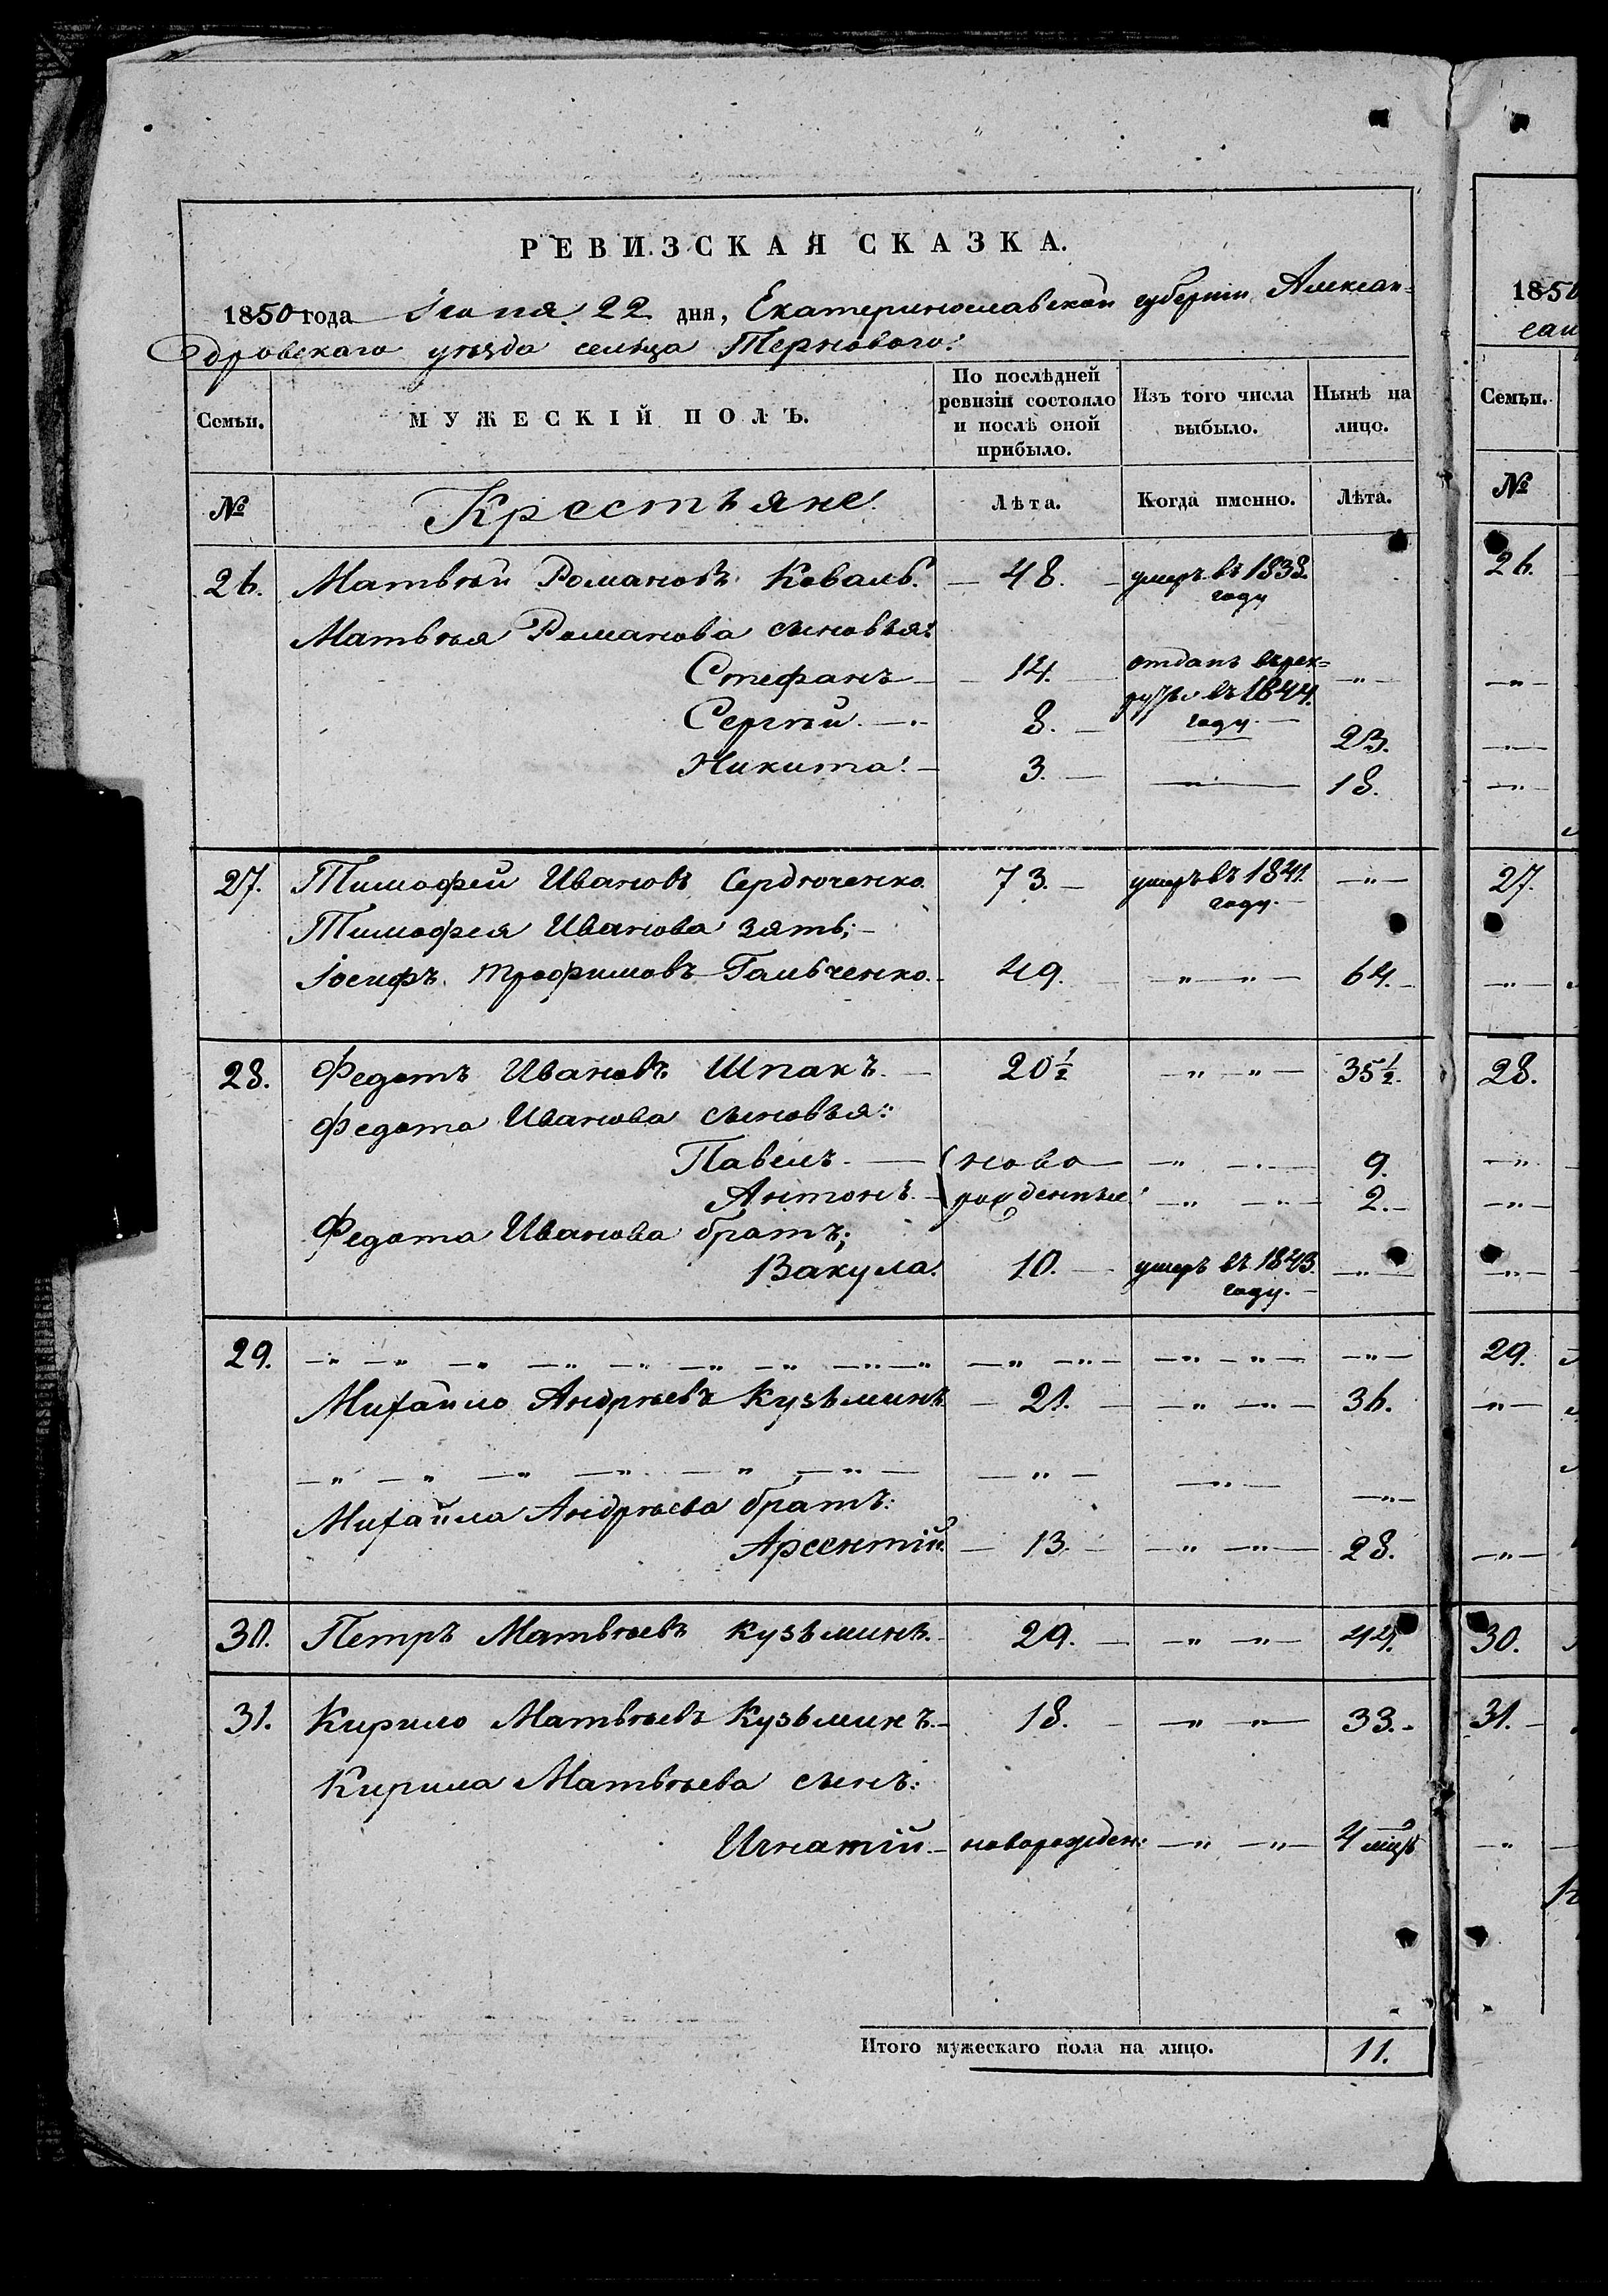 РЕВИЗСКАЯ СКАЗКА.
1850 года Іюня 22 дня, Екатеринославской губерніи Алексан-
дровскаго уѣзда сельца Терноваго.
Семьи. МУЖЕСКІЙ ПОЛЪ. По послѣдней ревизіи состояло и послѣ оной прибыло. Изъ того числа выбыло. Нынѣ на лицо.
№ Крестьяне. Лѣта. Когда именно. Лѣта.
26. Матвѣй Романовъ Коваль. — 48. — умеръ въ 1838. году
Матвѣя Романова сыновья:
Стефанъ — 14. отданъ въ рек= руты въ 1844. году — „ —
Сергѣй. — 8. — 23.
Никита. — 3. — „ — 18.
27. Тимофей Ивановъ Сердюченко. 73. — умеръ въ 1841. году. — „ —
Тимофея Иванова зять; —
Іосифъ Трофимовъ Гальченко. — 49. — „ — „ — 64.
28. Федотъ Ивановъ Шпакъ. — 20½ — „ — „ — 35½.
Федота Иванова сыновья:
Павелъ. — ново — „ — 9.
Антонъ. — рожденные — „ — 2.
Федота Иванова братъ;
Вакула. 10. — умеръ въ 1843. году. — „ —
29. — „ — „ — „ — „ — „ — „ — „ — „ — „ — „ — „ — „ — „ — „ —
Михайло Андрѣевъ Кузьминъ — 21. — „ — „ — 36.
— „ — „ — „ — „ — „ — „ — — „ — — „ — — „ —
Михайла Андрѣева братъ:
Арсентій. — 13. — „ — „ — 28.
30. Петръ Матвѣевъ Кузьминъ. — 29. — „ — „ — 44.
31. Кирило Матвѣевъ Кузьминъ. — 18. — „ — „ — 33.
Кирила Матвѣева сынъ:
Игнатій. — новорожден: — „ — „ — 4 мцъ
Итого мужескаго пола на лицо. 11.
1850
Семьи.
№
26.
27.
28.
29.
30.
31.